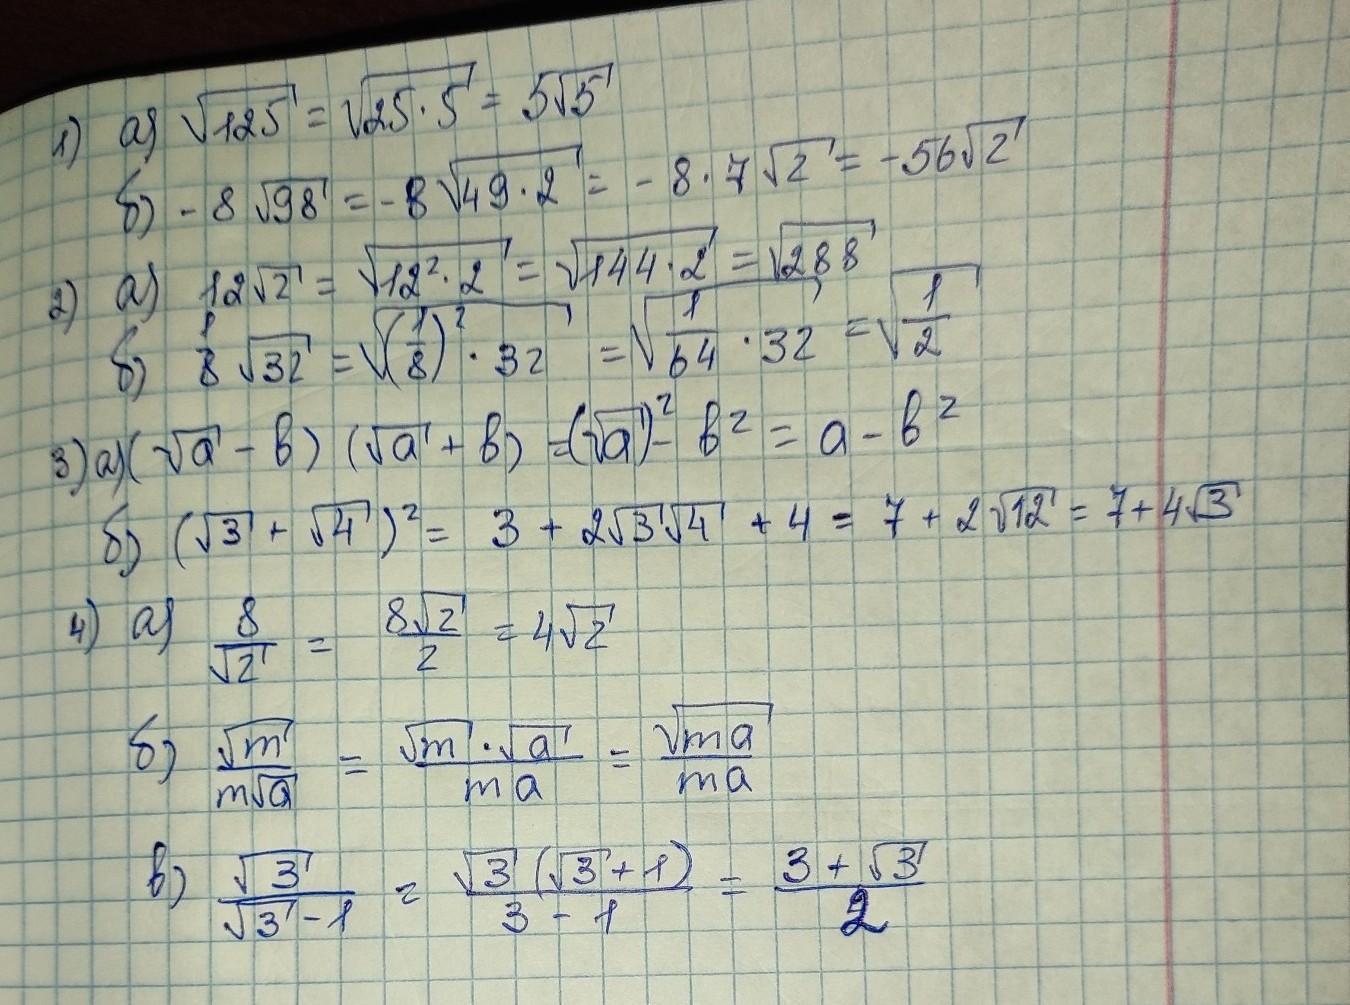 1) а) √125 = √25·5 = 5√5
б) -8√98 = -8√49·2 = -8·7√2 = -56√2
2) а) 12√2 = √12²·2 = √144·2 = √288
б) 1/8 √32 = √(1/8)²·32 = √1/64·32 = √1/2
3) а) (√a - b) (√a + b) = (√a)² - b² = a - b²
б) (√3 + √4)² = 3 + 2√3√4 + 4 = 7 + 2√12 = 7 + 4√3
4) а) 8/√2 = 8√2/2 = 4√2
б) √m/m√a = √m·√a/ma = √ma/ma
в) √3/√3-1 = √3(√3+1)/3-1 = 3+√3/2